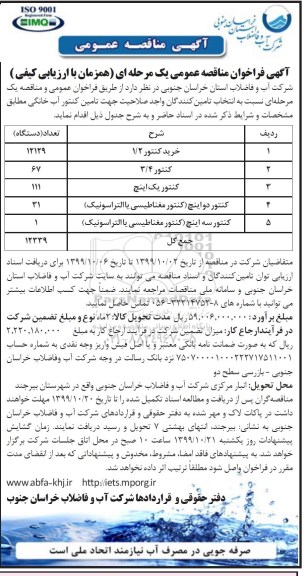 ISO 9001
IMQ
شرکت آب و فاضلاب خراسان جنوبی
آگهی مناقصه عمومی
آگهی فراخوان مناقصه عمومی یک مرحله ای (همزمان با ارزیابی کیفی)
شرکت آب و فاضلاب استان خراسان جنوبی در نظر دارد از طریق فراخوان عمومی و مناقصه یک
مرحله‌ای نسبت به انتخاب تامین کنندگان واجد صلاحیت جهت تامین کنتور آب خانگی مطابق
مشخصات و شرایط ذکر شده در اسناد حاضر و به شرح جدول ذیل اقدام نماید.
ردیف شرح تعداد(دستگاه)
۱ خرید کنتور ۱/۲ ۱۲۱۲۹
۲ کنتور ۳/۴ ۶۷
۳ کنتور یک اینچ ۱۱۱
۴ کنتور دو اینچ (کنتور مغناطیسی یا التراسونیک) ۳۱
۵ کنتور سه اینچ (کنتور مغناطیسی یا التراسونیک) ۱
جمع کل ۱۲۳۳۹
متقاضیان شرکت در مناقصه از تاریخ ۱۳۹۹/۱۰/۰۲ تا تاریخ ۱۳۹۹/۱۰/۰۶ برای دریافت اسناد
ارزیابی توان تامین کنندگان و اسناد مناقصه می توانند به سایت شرکت آب و فاضلاب استان
خراسان جنوبی و سامانه ملی مناقصات مراجعه نمایند. ضمناً جهت کسب اطلاعات بیشتر
می توانید با شماره های ۸-۳۲۲۱۴۷۵۳-۰۵۶ تماس حاصل نمایید.
مبلغ برآورد: ۵۹,۰۰۶,۰۰۰,۰۰۰ ریال مدت تحویل کالا: ۲ماه نوع و مبلغ تضمین شرکت
در فرآیند ارجاع کار: میزان تضمین شرکت در فرآیند ارجاع کار به مبلغ ۲,۲۲۰,۱۸۰,۰۰۰
ریال که به صورت ضمانت نامه بانکی معتبر و یا اصل فیش واریز وجه نقدی به شماره حساب
نزد بانک رسالت در وجه شرکت آب وفاضلاب خراسان
جنوبی - بازرسی سطح دو
محل تحویل: انبار مرکزی شرکت آب و فاضلاب خراسان جنوبی واقع در شهرستان بیرجند
مناقصه‌گران پس از دریافت و مطالعه اسناد تکمیل شده را تا تاریخ ۱۳۹۹/۱۰/۲۰ مهلت خواهند
داشت در پاکات لاک و مهر شده به دفتر حقوقی و قراردادهای شرکت آب و فاضلاب خراسان
جنوبی به نشانی: بیرجند، انتهای بهشتی ۷ تحویل و رسید دریافت نمایند. زمان گشایش
پیشنهادات روز یکشنبه ۱۳۹۹/۱۰/۲۱ ساعت ۱۰ صبح در محل اتاق جلسات شرکت برگزار
خواهد شد. به پیشنهادهای فاقد امضا، مشروط، مخدوش و پیشنهاداتی که بعد از انقضا مدت
مقرر در فراخوان واصل شود مطلقاً ترتیب اثر داده نخواهد شد.
www.abfa-khj.ir http://iets.mporg.ir
دفتر حقوقی و قراردادها شرکت آب و فاضلاب خراسان جنوب
صرفه جویی در مصرف آب نیازمند اتحاد ملی است